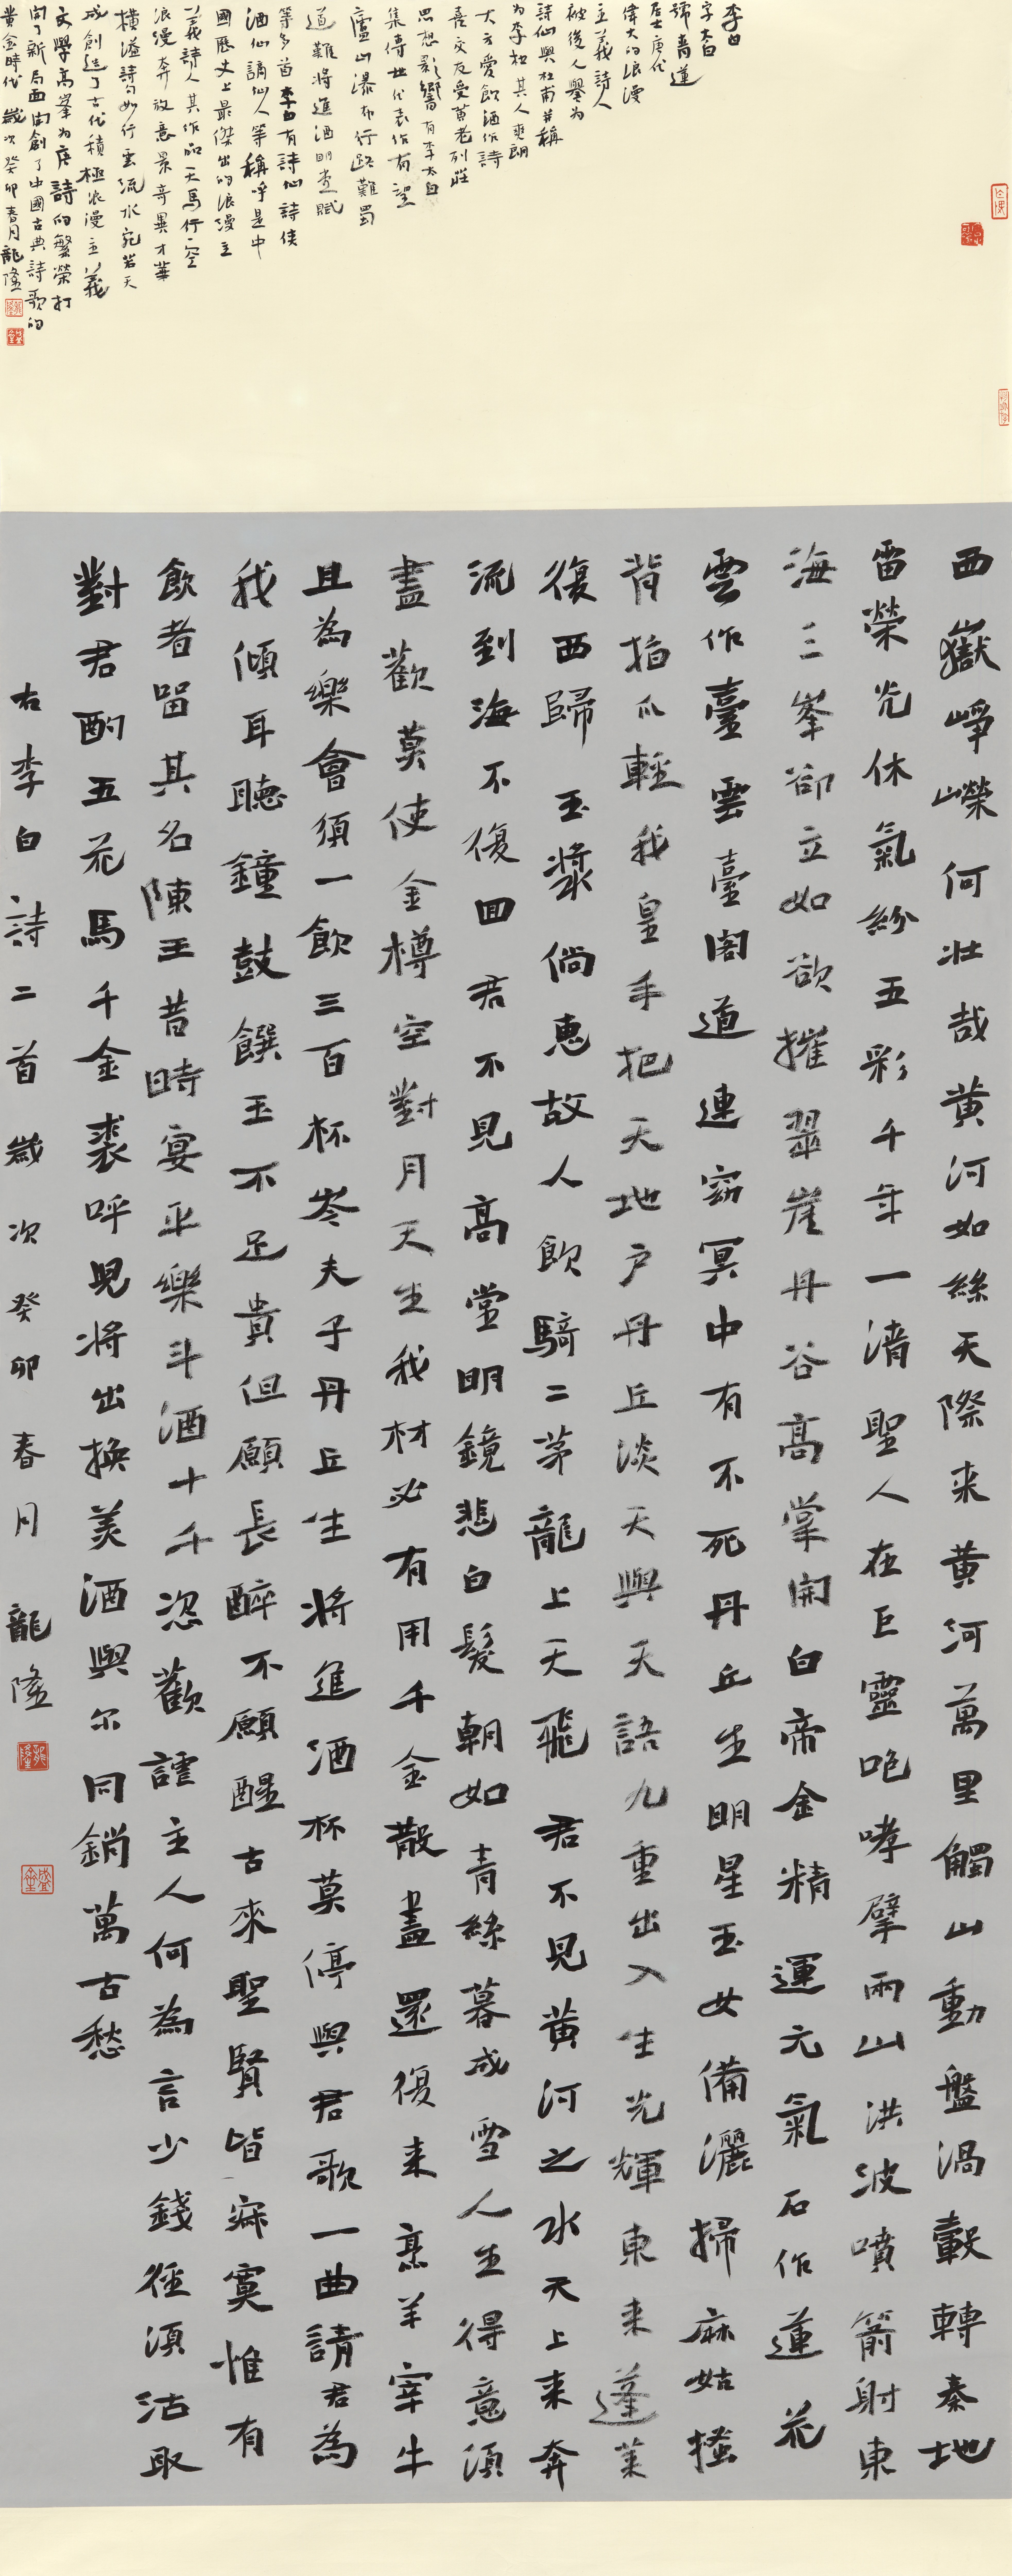 李白
字太白
號青蓮
居士唐代
偉大的浪漫
主義詩人
被後人譽為
詩仙與杜甫並稱
為李杜其人爽朗
大方愛飲酒作詩
喜交友受黃老列莊
思想影響有李太白
集傳世代表作有望
廬山瀑布行路難蜀
道難將進酒明堂賦
等多首李白有詩仙詩俠
酒仙謫仙人等稱呼是中
國歷史上最傑出的浪漫主
義詩人其作品天馬行空
浪漫奔放意景奇異才華
橫溢詩句如行雲流水宛若天
成創造了古代積極浪漫主義
文學高峯為唐詩的繁榮打
開了新局面開創了中國古典詩歌的
黃金時代歲次癸卯春月龍隆
西嶽崢嶸何壯哉黃河如絲天際来黃河萬里觸山動盤渦轂轉秦地
雷榮光休氣紛五彩千年一清聖人在巨靈咆哮擘兩山洪波噴箭射東
海三峯卻立如欲摧翠崖丹谷高掌開白帝金精運元氣石作蓮花
雲作臺雲臺閣道連窈冥中有不死丹丘生明星玉女備灑掃麻姑搔
背指爪輕我皇手把天地戶丹丘淡天與天語九重出入生光輝東来蓬萊
復西歸玉漿倘惠故人飲騎二茅龍上天飛君不見黃河之水天上来奔
流到海不復回君不見高堂明鏡悲白髮朝如青絲暮成雪人生得意須
盡歡莫使金樽空對月天生我材必有用千金散盡還復来烹羊宰牛
且為樂會須一飲三百杯岑夫子丹丘生將進酒杯莫停與君歌一曲請君為
我傾耳聽鐘鼓饌玉不足貴但願長醉不願醒古來聖賢皆寂寞惟有
飲者留其名陳王昔時宴平樂斗酒十千恣歡謔主人何為言少錢徑須沽取
對君酌五花馬千金裘呼兒將出換美酒與尔同銷萬古愁
右李白詩二首歲次癸卯春月龍隆